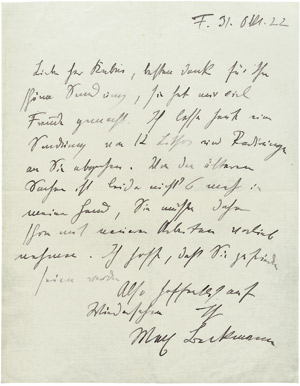 F. 31. Okt. 22
Lieber Herr Kubin, besten Dank für Ihre
schöne Sendung, sie hat mir viel
Freude gemacht. Ich lasse heut eine
Sendung von 12 Lithos und Radierungen
an Sie abgehen. Von den älteren
Sachen ist leider nichts mehr in
meiner Hand, Sie müssen daher
schon mit neueren Arbeiten vorlieb
nehmen. Ich hoffe, daß Sie zufrieden
seien werden
Also hoffentlich auf
Wiedersehen Ihr
Max Beckmann